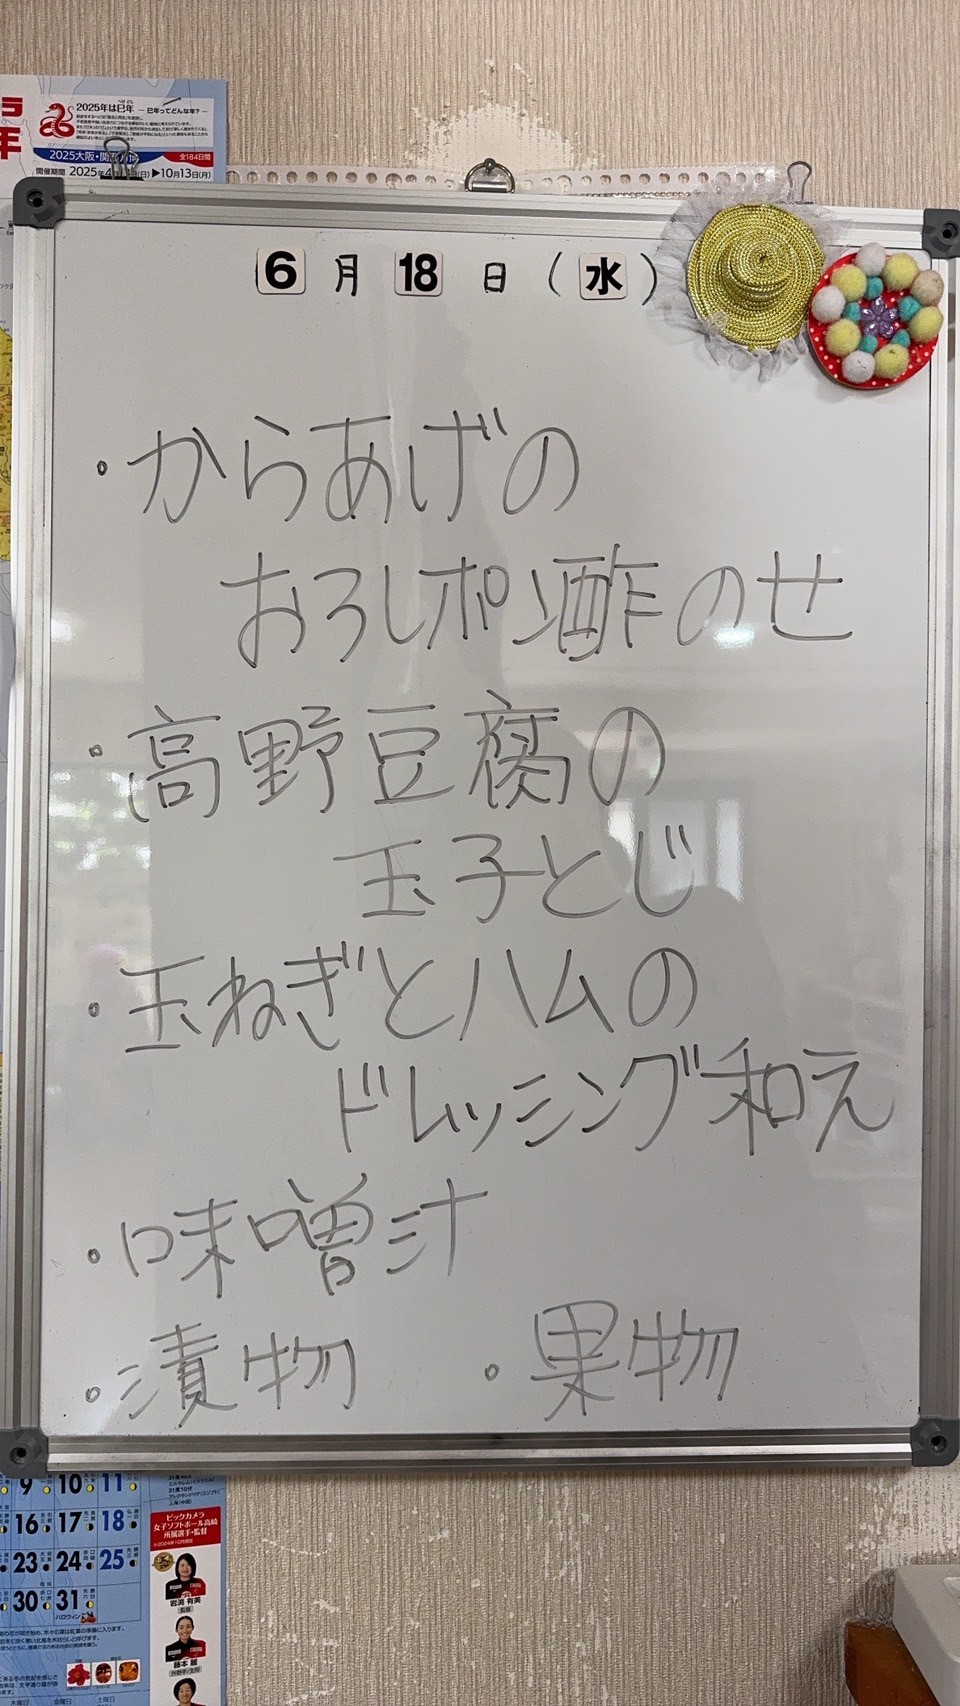 2025年は巳年 ― 巳年ってどんな年? ―
2025大阪・関西万博
全184日間
開催期間 2025年4月 日(日)▶10月13日(月)
6月18日(水)
・からあげの
おろしポン酢のせ
・高野豆腐の
玉子とじ
・玉ねぎとハムの
ドレッシング和え
・味噌汁
・漬物 ・果物
9 10 11
16 17 18
23 24 25
30 31
ハロウィン
ビックカメラ
女子ソフトボール高崎
所属選手・監督
岩渕 有美
監督
藤本 麗
木曜日 金曜日 土曜日